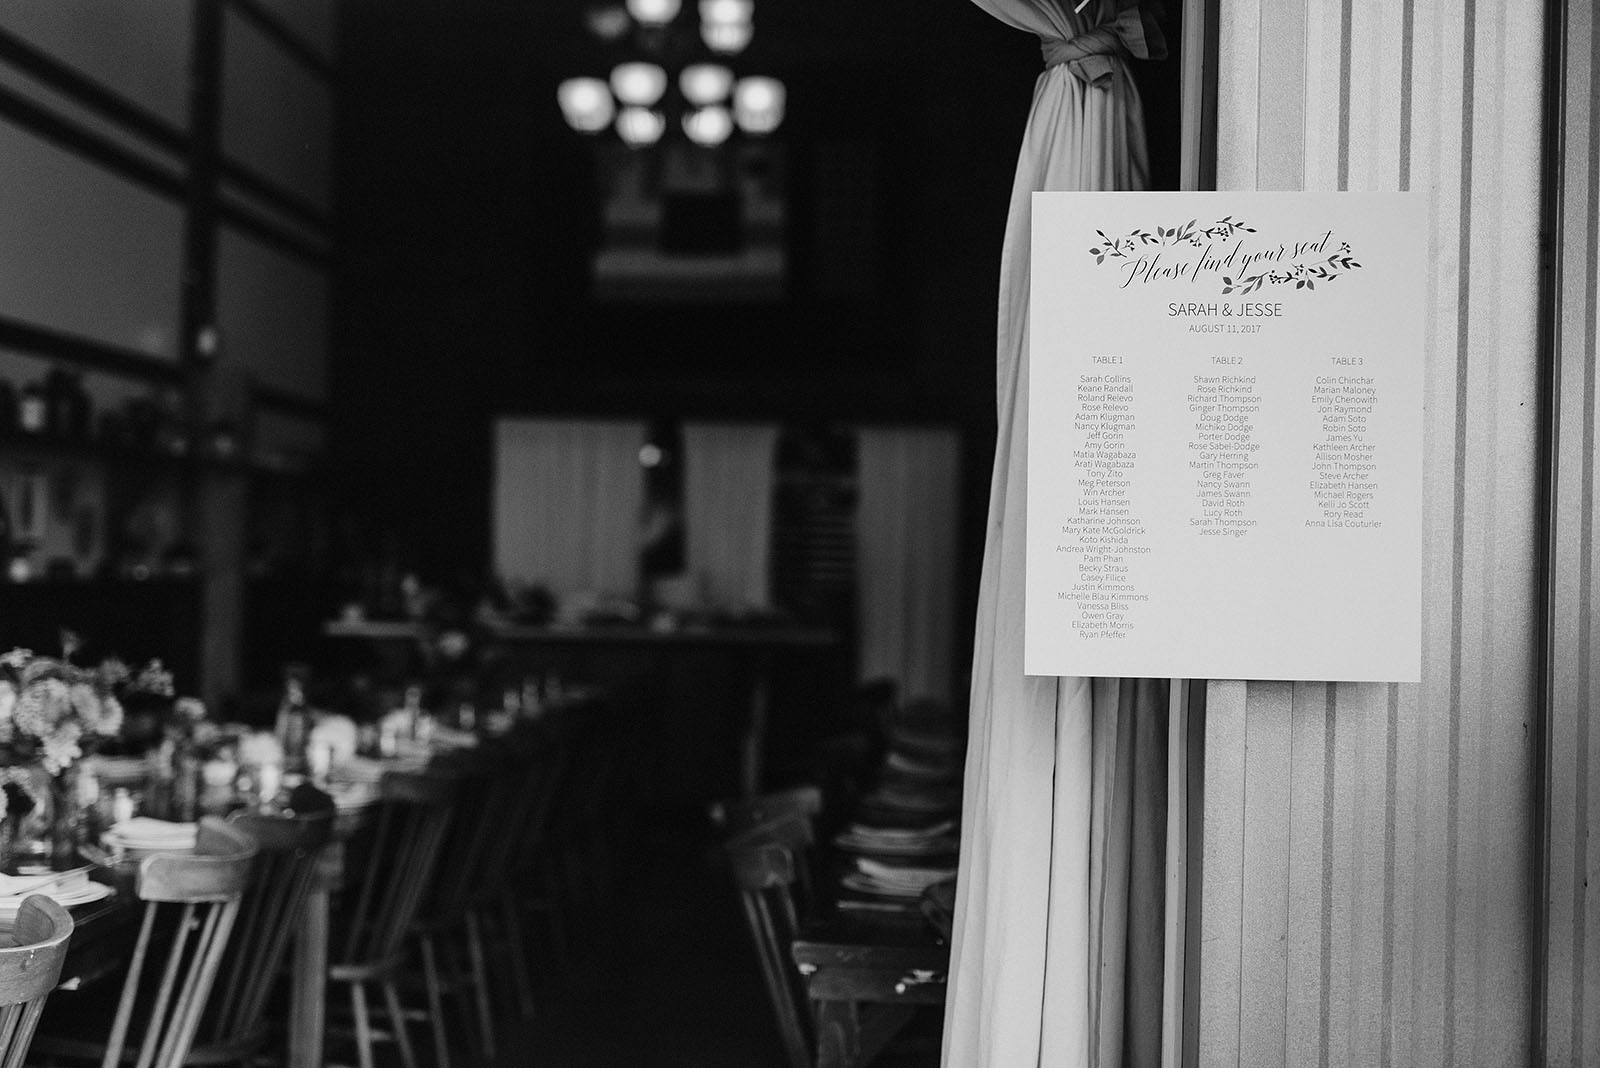 Please find your seat
SARAH & JESSE
AUGUST 11, 2017
TABLE 1
Sarah Collins
Keane Randall
Roland Relevo
Rose Relevo
Adam Klugman
Nancy Klugman
Jeff Gorin
Amy Gorin
Matia Wagabaza
Arati Wagabaza
Tony Zito
Meg Peterson
Win Archer
Louis Hansen
Mark Hansen
Katharine Johnson
Mary Kate McGoldrick
Koto Kishida
Andrea Wright-Johnston
Pam Phan
Becky Straus
Casey Filice
Justin Kimmons
Michelle Blau Kimmons
Vanessa Bliss
Owen Gray
Elizabeth Morris
Ryan Pfeffer
TABLE 2
Shawn Richkind
Rose Richkind
Richard Thompson
Ginger Thompson
Doug Dodge
Michiko Dodge
Porter Dodge
Rose Sabel-Dodge
Gary Herring
Martin Thompson
Greg Faver
Nancy Swann
James Swann
David Roth
Lucy Roth
Sarah Thompson
Jesse Singer
TABLE 3
Colin Chinchar
Marian Maloney
Emily Chenowith
Jon Raymond
Adam Soto
Robin Soto
James Yu
Kathleen Archer
Allison Mosher
John Thompson
Steve Archer
Elizabeth Hansen
Michael Rogers
Kelli Jo Scott
Rory Read
Anna Lisa Couturier